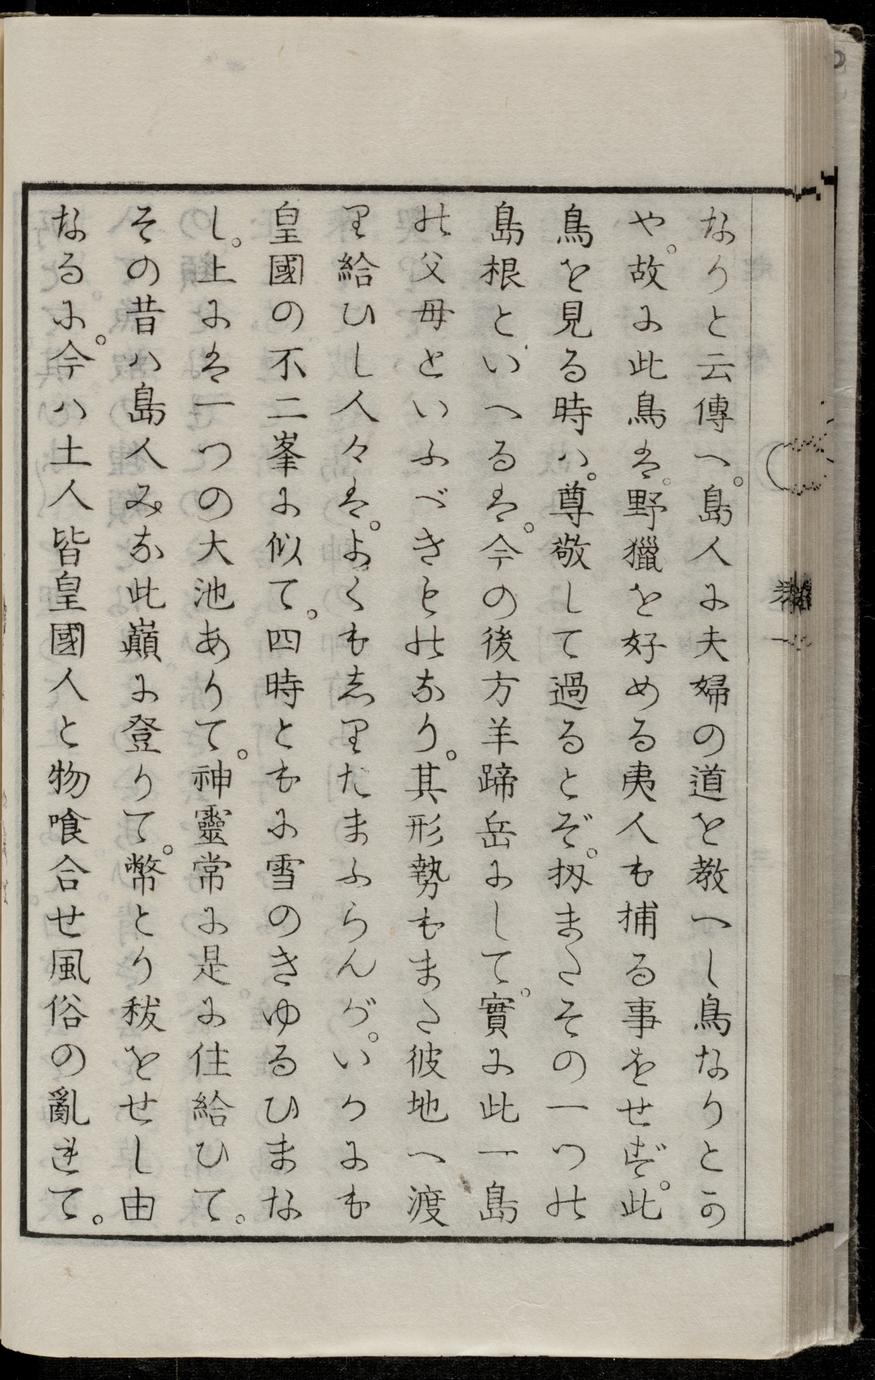 なりと云傳へ。島人に夫婦の道を教へし鳥なりとか
や。故に此鳥は。野獵を好める夷人も捕る事をせず。此
鳥を見る時ハ。尊敬して過るとぞ。扨またその一つの
島根といへるは。今の後方羊蹄岳にして。實に此一島
の父母といふべきものなり。其形勢もまた彼地へ渡
り給ひし人々は。よくも志りたまふらんが。いかにも
皇國の不二峯に似て。四時ともに雪のきゆるひまな
し。上には一つの大池ありて。神靈常に是に住給ひて。
その昔ハ島人みな此巓に登りて。幣とり秡をせし由
なるに。今ハ土人皆皇國人と物喰合せ風俗の亂れて。